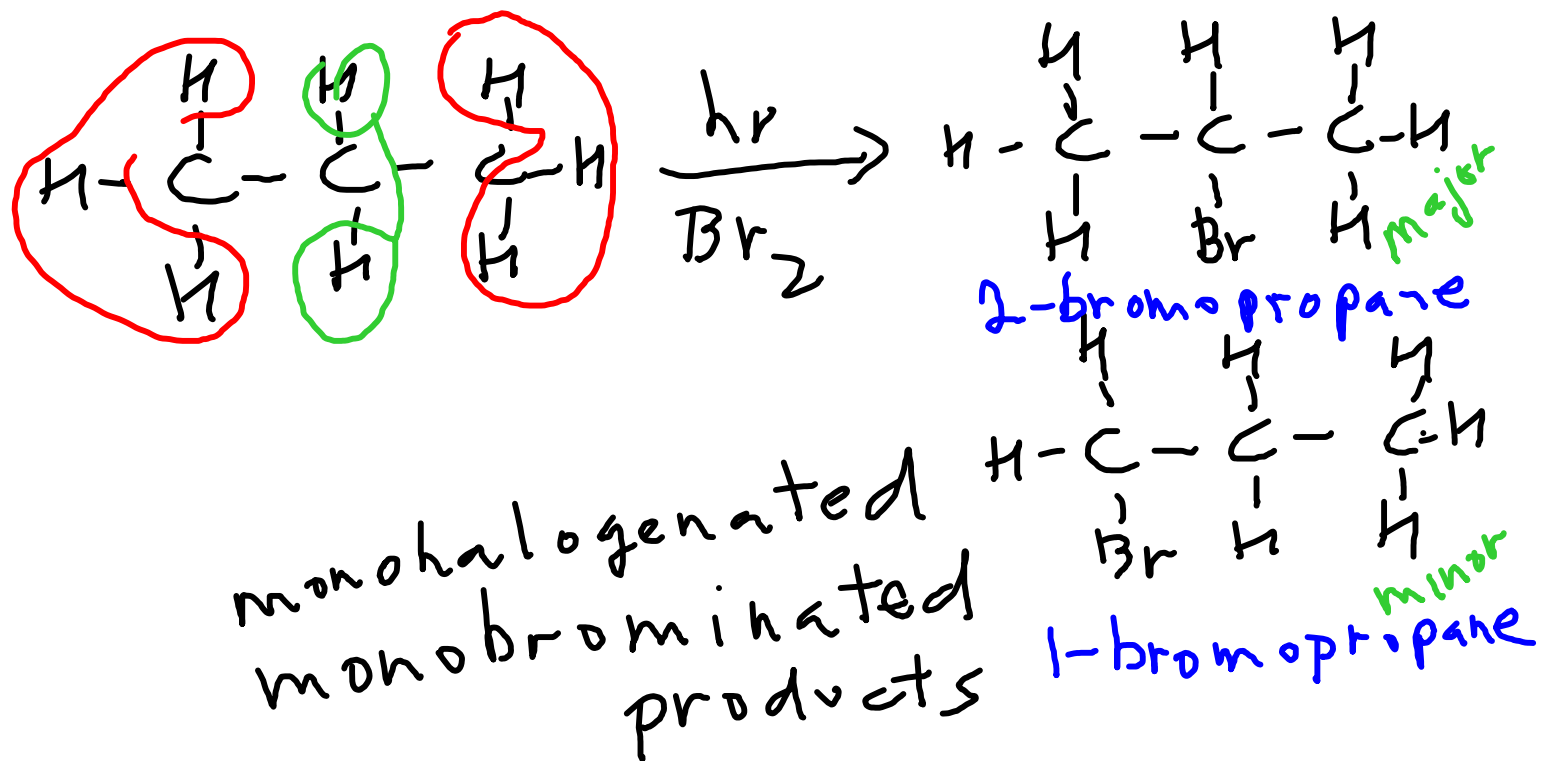 H H H H H H
H - C - C - C - H hr H - C - C - C - H
H H H Br2 H Br H major
2-bromopropane
H H H
H - C - C - C - H
Br H H
minor
1-bromopropane
monohalogenated
monobrominated
products